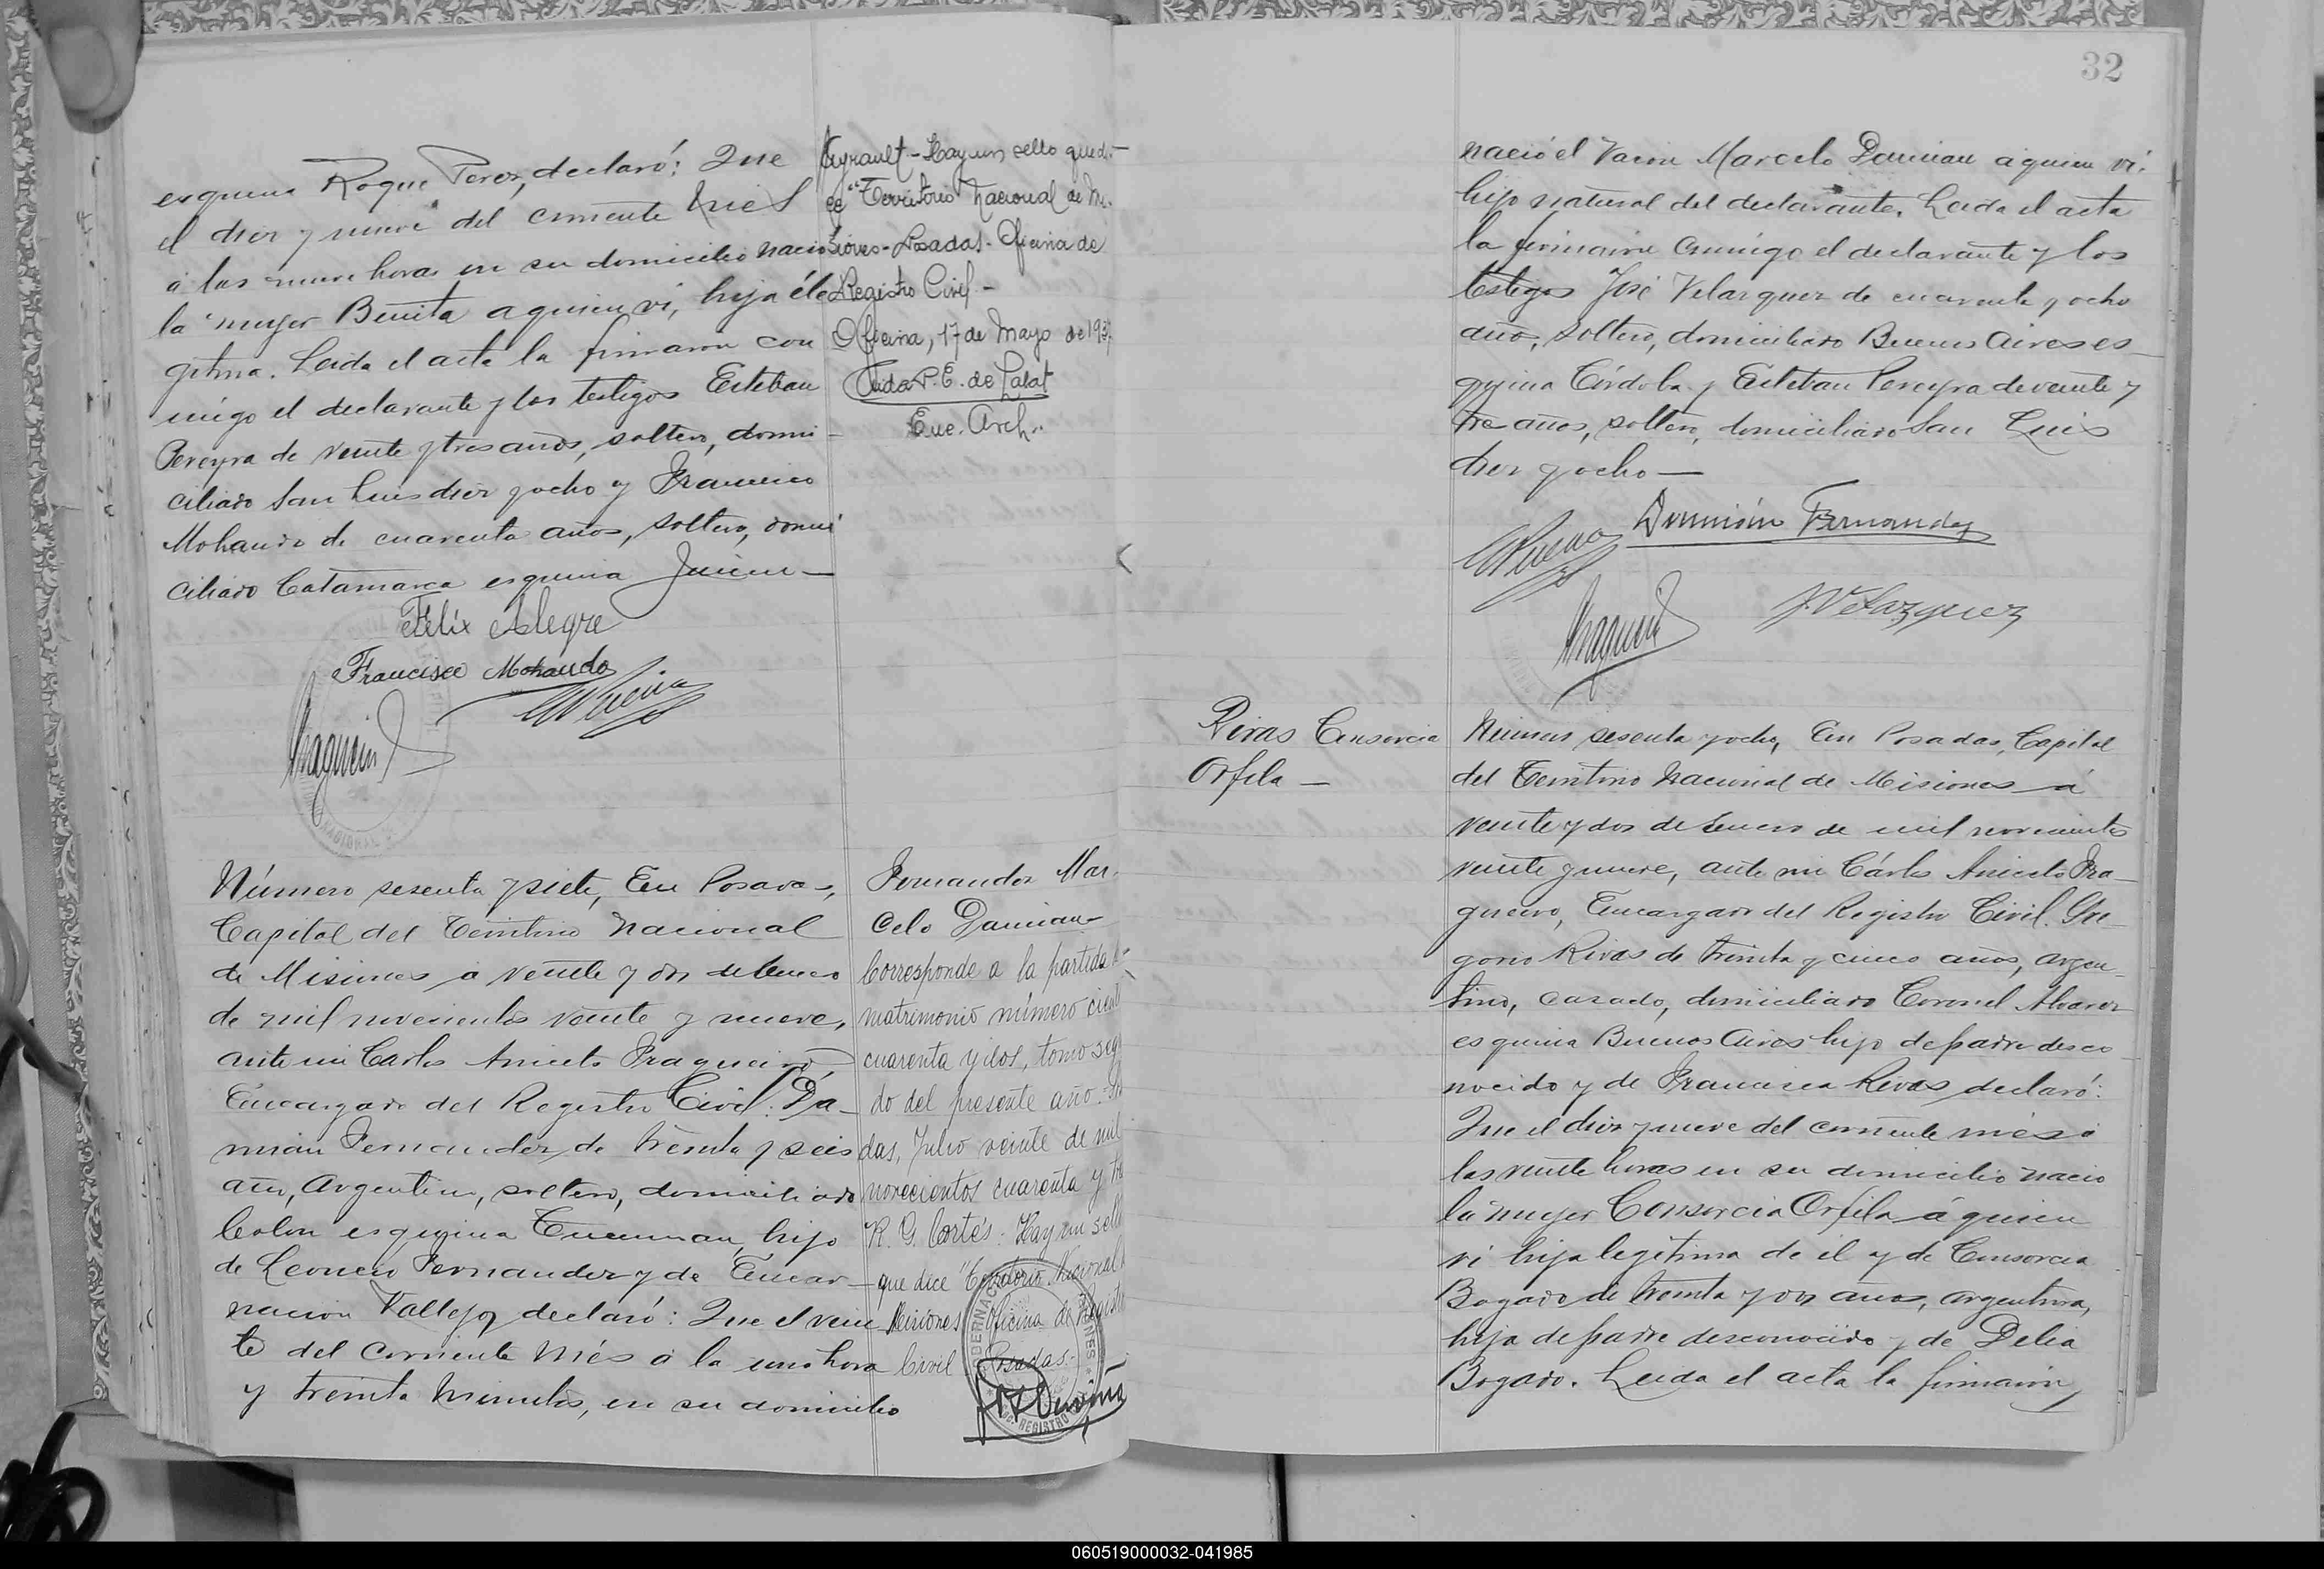 esquina Roque Perez, declaró: Que
el diez y nueve del corriente mes
á las nueve horas en su domicilio nació
la mujer Benita a quien vi, hija le
gitima. Leida el acta la firmaron con
migo el declarante y los testigos Esteban
Pereyra de veinte y tres años, soltero, domi-
ciliado San Luis diez y ocho y Francisco
Mohando de cuarenta años, soltero, domi
ciliado Catamarca esquina Junin —
Félix Alegre
Francisco Mohando
Ayrault - Hay un sello que di-
ce "Territorio Nacional de Mi-
siones - Posadas - Oficina de
Registro Civil -
Oficina, 17 de Mayo de 193
P. E. de Palat
Enc. Arch.
Número sesenta y siete, En Posadas,
Capital del Territorio Nacional
de Misiones a veinte y dos de Enero
de mil novecientos veinte y nueve,
ante mi Carlos Aniceto Fragueiro,
Encargado del Registro Civil: Da-
mián Fernandez de treinta y seis
años, Argentino, soltero, domiciliado
Colon esquina Tucuman, hijo
de Leoncio Fernandez y de Encar-
nacion Vallejos declaró: Que el vein
te del corriente mes a la una hora
y treinta minutos, en su domicilio
Fernandez Mar-
celo Damian-
Corresponde a la partida de
matrimonio número ciento
cuarenta y dos, tomo segun
do del presente año. Posa
das, Julio veinte de mil
novecientos cuarenta y tres
R. G. Cortés. Hay un sello
que dice "Territorio Nacional
Misiones Oficina de Registro
Civil Posadas.-
32
nació el varon Marcelo Damian a quien vi.
hijo natural del declarante. Leida el acta
la firmaron conmigo el declarante y los
testigos José Velazquez de cuarenta y ocho
años, soltero, domiciliado Buenos Aires es-
quina Córdoba y Esteban Pereyra de veinte y
tres años, soltero, domiciliado San Luis
diez y ocho —
Damián Fernandez
J. Velazquez
Rivas Consorcia
Orfila —
Número sesenta y ocho, En Posadas, Capital
del Territorio Nacional de Misiones a
veinte y dos de Enero de mil novecientos
veinte y nueve, ante mi Cárlos Aniceto Fra-
gueiro, Encargado del Registro Civil. Gre-
gorio Rivas de treinta y cinco años, argen-
tino, casado, domiciliado Coronel Alvarez
esquina Buenos Aires hijo de padre desco-
nocido y de Francisca Rivas declaró:
Que el diez y nueve del corriente més a
las veinte horas en su domicilio nació
la mujer Consorcia Orfila á quien
vi hija legítima de él y de Consorcia
Bogado de treinta y dos años, argentina,
hija de padre desconocido y de Delia
Bogado. Leida el acta la firmaron,
060519000032-041985